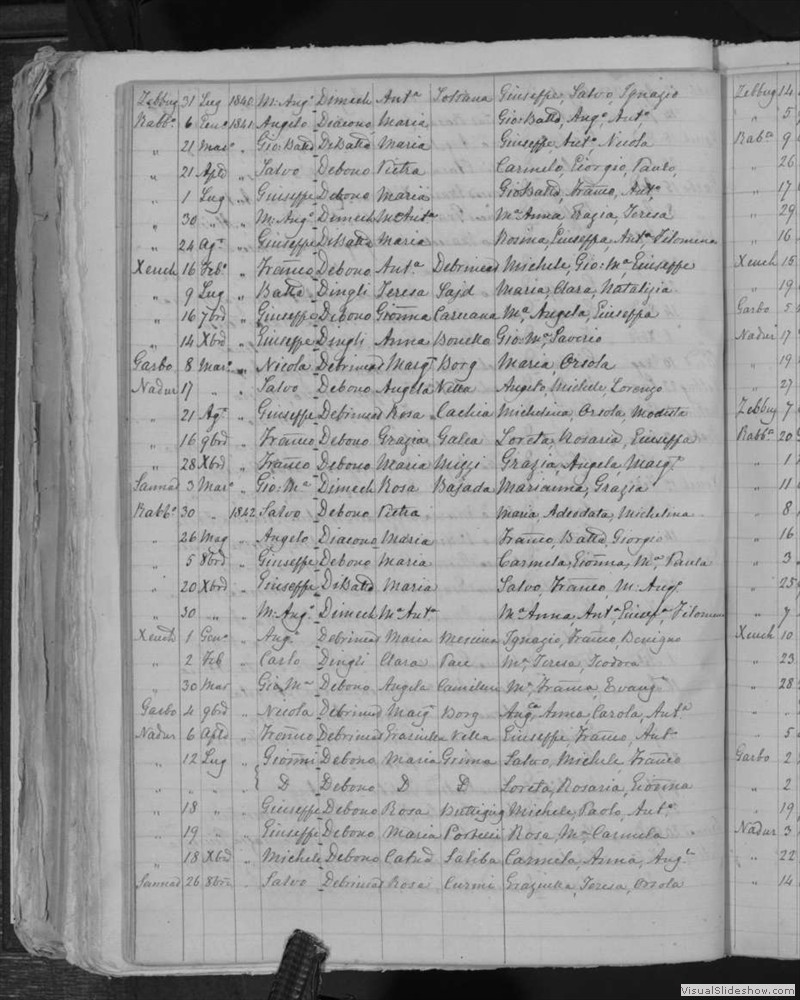 Zebbug 31 Lug 1840 M: Ang.º Dimech Ant.ª Giuseppe, Salvo, Ignazio
Rabb.º 6 Gen.º 1841 Angelo Diacono Maria Gio:Batta, Ang.º Ant.º
" 21 Mar.º " Gio:Batta DiBatta Maria Giuseppe, Ant.º Nicola
" 21 Aple " Salvo Debono Pietra Carmelo, Giorgio, Paulo,
" 1 Lug " Giuseppe Debono Maria Gio:Batta, Franco, Ant.º
" 30 " " M: Ang.º Dimech M.ª Ant.ª M.ª Anna, Grazia, Teresa
" 24 Ag.º " Giuseppe DiBatta Maria Rosina, Giuseppa, Ant.ª Filomena
Xeuch 16 Feb.º " Franco Debono Ant.ª Debrincad Michele, Gio: M.ª Giuseppe
" 9 Lug " Batta Dingli Teresa Sajd Maria, Clara, Natalizia
" 16 7bre " Giuseppe Debono Gionna Caruana M.ª Angela, Giuseppa
" 14 Xbre " Giuseppe Dingli Anna Gio: M.ª Saverio
Garbo 8 Mar.º " Nicola Debrincad Marg.ª Borg Maria, Orsola
Nadur 17 " " Salvo Debono Angela Vella Angelo, Michele, Lorenzo
" 21 Ag.º " Giuseppe Debrincad Rosa Cachia Michelina, Orsola, Modesta
" 16 9bre " Franco Debono Grazia Galea Loreta, Rosaria, Giuseppa
" 28 Xbre " Franco Debono Maria Mizzi Grazia, Angela, Marg.ª
Sannad 3 Mar.º " Gio: M.ª Dimech Rosa Bajada Marianna, Grazia
Rabb.º 30 " 1842 Salvo Debono Pietra Maria, Adeodata, Michelina
" 26 Mag " Angelo Diacono Maria Franco, Batta, Giorgio
" 5 8bre " Giuseppe Debono Maria Carmela, Gionna, M.ª Paula
" 20 Xbre " Giuseppe DiBatta Maria Salvo, Franco, M: Ang.º
" 30 " " M: Ang.º Dimech M.ª Ant.ª M.ª Anna, Ant.ª Giusep.ª Filomena
Xeuch 1 Gen.º " Ang.º Debrincad Maria Messina Ignazio, Franco, Benigno
" 2 Feb " Carlo Dingli Clara Pace M.ª Teresa, Teodora
" 30 Mar " Gio: M.ª Debono Angela Camilleri M.ª Franca, Evang.ª
Garbo 4 9bre " Nicola Debrincad Marg.ª Borg Ang.ª Anna, Carola, Ant.ª
Nadur 6 Aple " Franco Debrincad Graziella Vella Giuseppe, Franco, Ant.º
" 12 Lug " Gionni Debono Maria Grima Salvo, Michele, Franco
" " " " D Debono D D Loreta, Rosaria, Gionna
" 18 " " Giuseppe Debono Rosa Buttigieg Michele, Paolo, Ant.º
" 19 " " Giuseppe Debono Maria Portelli Rosa, M.ª Carmela
" 18 Xbre " Michele Debono Catrd Saliba Carmela, Anna, Ang.ª
Sannad 26 8bre " Salvo Debrincad Rosa Curmi Graziella, Teresa, Orsola
Zebbug 14
" 5
Rab.ª 9
" 26
" 17
" 29
" 16
Xeuch 15
" 19
Garbo 5
Nadur 17
" 19
" 27
Zebbug 7
Rabb.ª 20
" 1
" 11
" 8
" 16
" 3
" 25
" 7
Xeuch 10
" 23
" 28
" "
" 5
Garbo 2
" 2
" 19
Nadur 3
" 22
" 14
VisualSlideshow.com